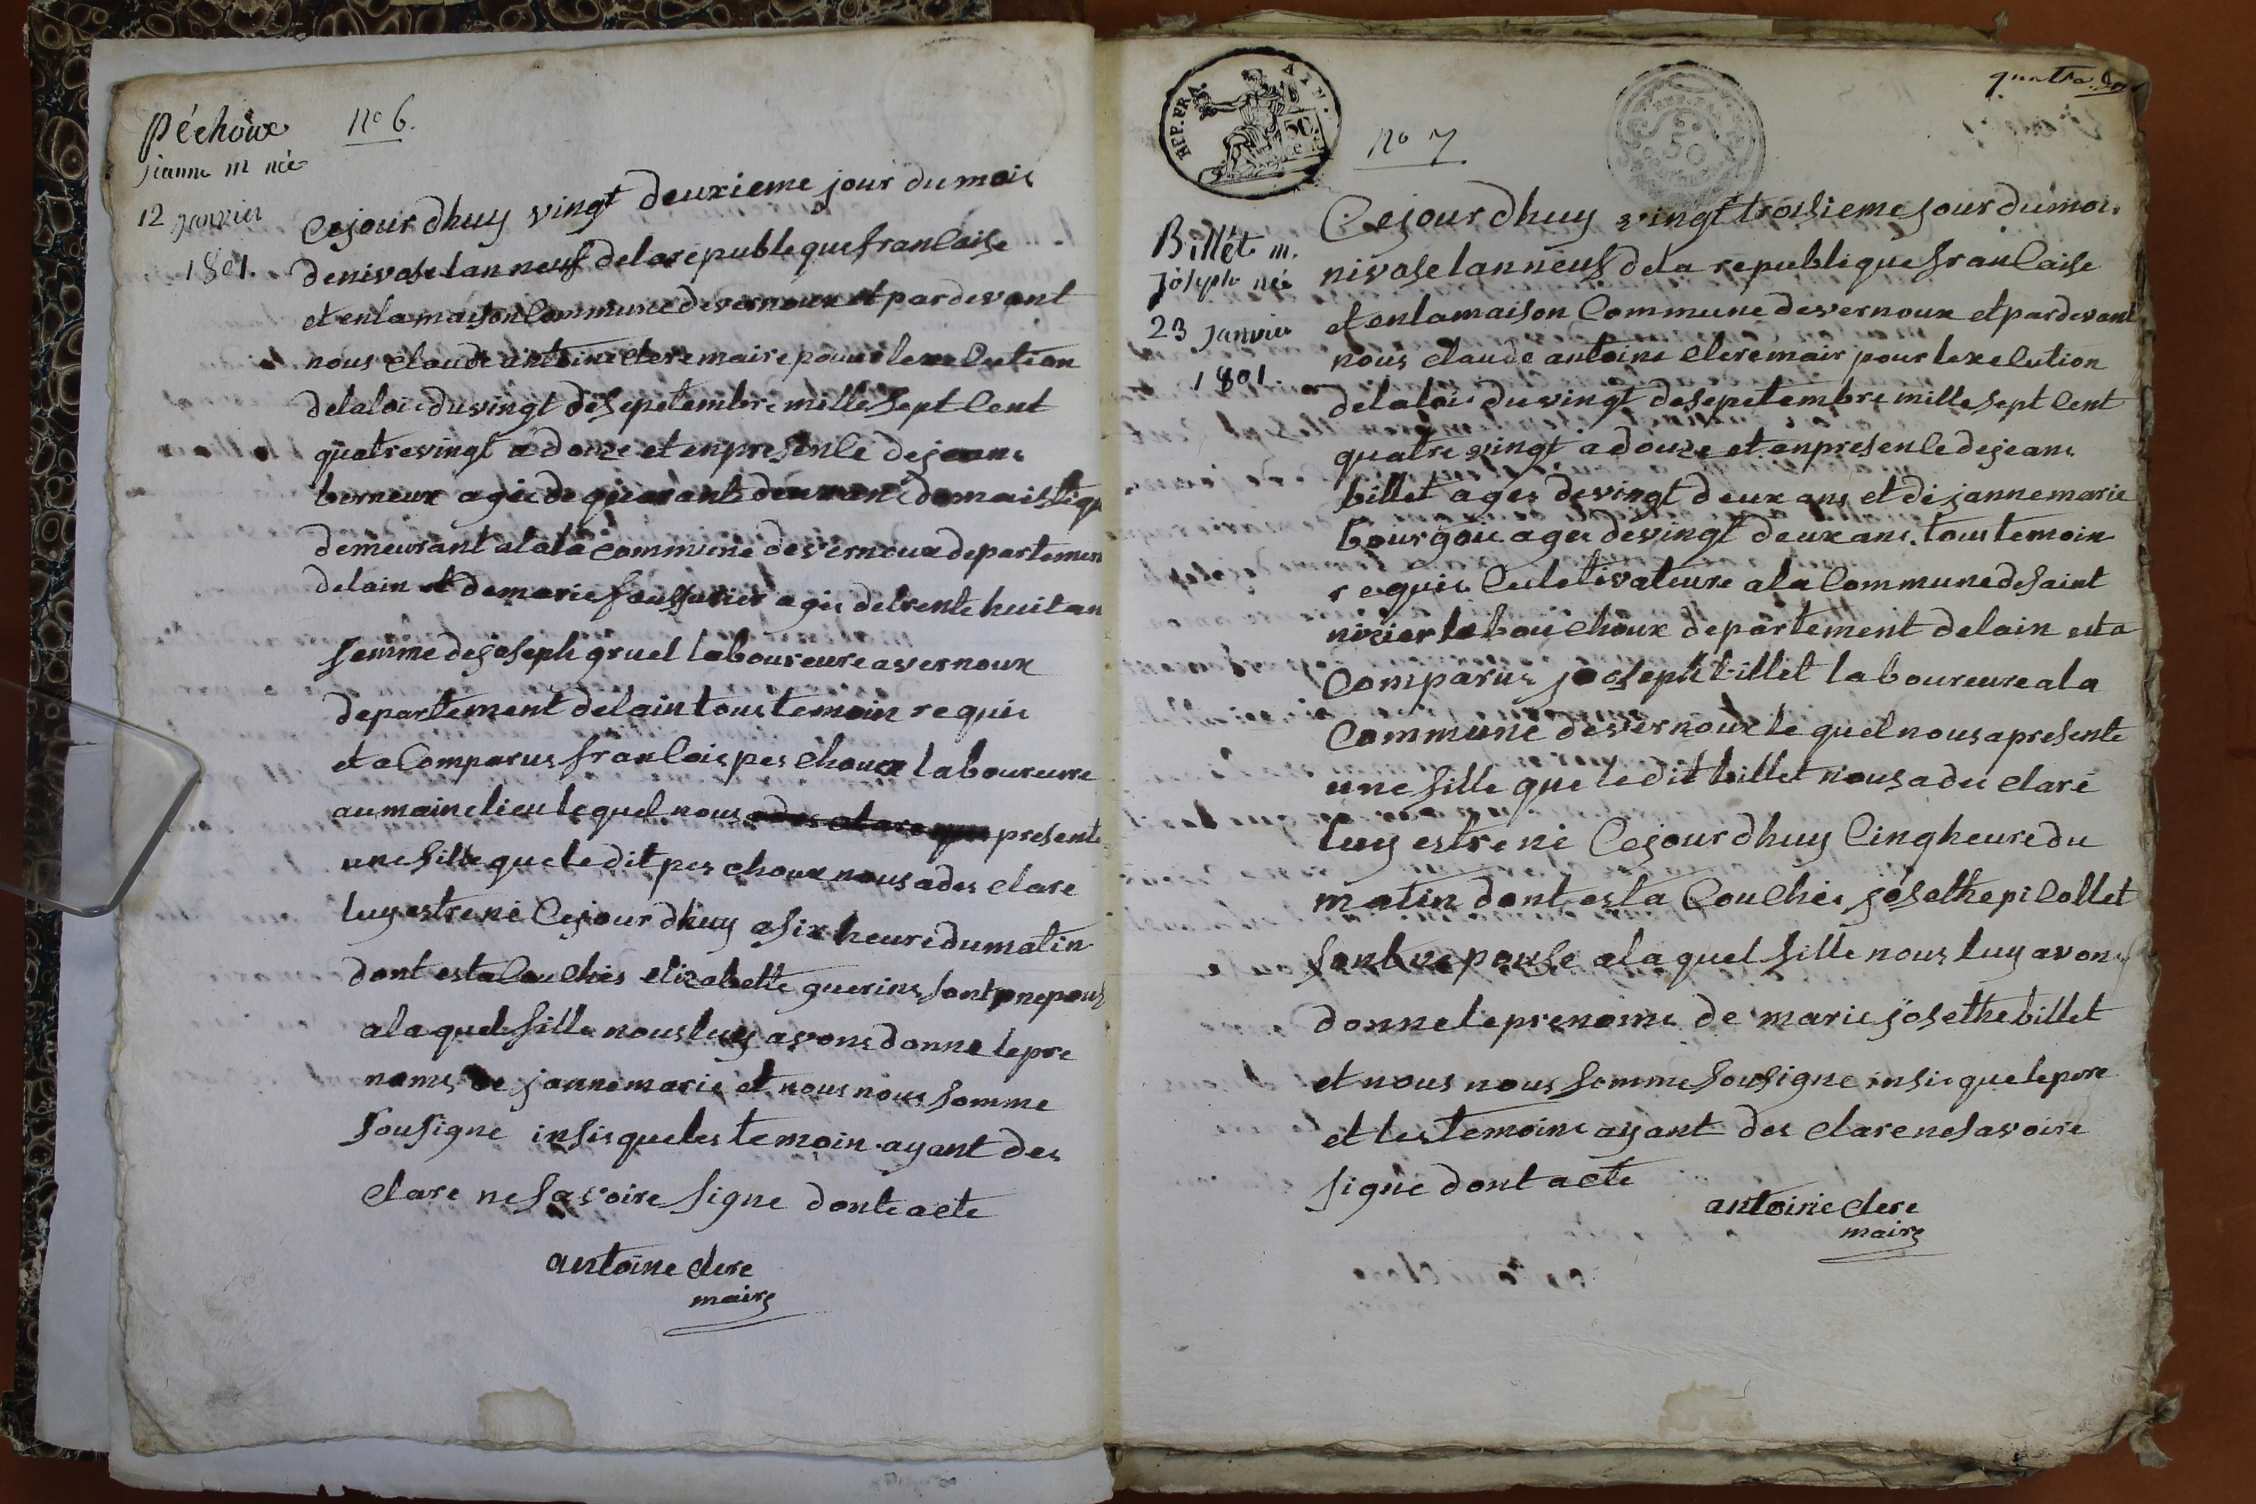 Péchoux
jianne m née
12 janvier
1801.
no 6.
Cejour dhuy vingt deuxieme jour du mois
denivose lan neuf delarepubleque franlaise
et enlamaison Commune devernoux et pardevant
nous claude antoine clere maire pour lexelution
delaloi duvingt desepetembre mille sept Cent
quatrevingt a douze et enpresenle dejeant
berneux agée de quarante deux ans domaistique
demeurant alala commune devernoux departement
delain et demarie foussurier agée detrente huit an
femme dejoseph gruel laboureure avernoux
departement delain tous temoin requis
et aComparus franlois pes choux laboureure
aumaine lieu lequel nous presente
une fille que ledit pes choux nous ades clare
luy estre né Cejour dhuy asix heure dumatin
dont esta Couchés elizabette guerine sont pnepouse
alaquel fille nous luy avons donne lepre
nome de jannemarie et nous nous somme
sousigne insis queles temoin ayant des
clare ne savoire signe donte acte
antoine clere
maire
REP. FRA. 50 c.
no 7
50
quatre
Billét m.
Joseph née
23 Janvier
1801.
Cejour dhuy vingt troisieme jour dumois
nivose lan neuf dela republique franlaise
et enlamaison Commune devernoux et pardevant
nous claude antoine clere mair pour lexelution
delaloi du vingt desepetembre mille sept Cent
quatre vingt a douze et enpresenle dejeant
billet ages devingt deux ans et de jannemarie
bourgois agée devingt deux ans tous temoin
requis Culetivateure ala Commune desaint
nizier le bouchoux departement delain esta
Comparus joseph billet laboureure ala
Commune devernoux le quel nous apresente
une fille que ledit billet nous adeé claré
luy estre né Cejour dhuy Cinq heure du
matin dont esta Couchée josethe pi Collet
sont epouse alaquel fille nous luy avons
donne le prenome de marie josethe billet
et nous nous somme sousigne insis que le pere
et les temoine ayant des clare ne savoire
signe dont acte
antoine clere
maire